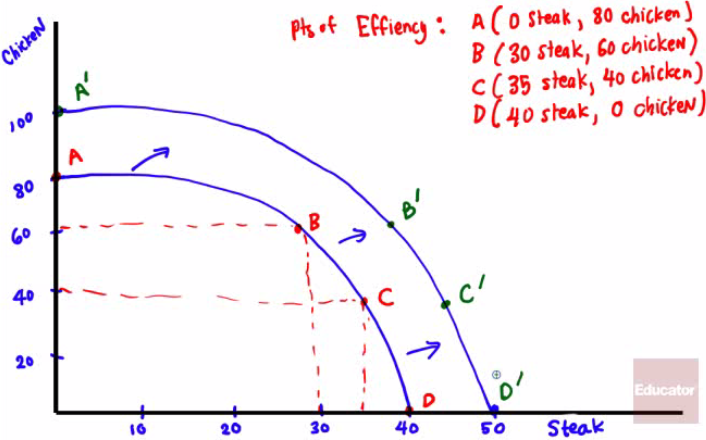 Pts of Effiency : A ( 0 steak , 80 chicken )
B ( 30 steak, 60 chicken)
C ( 35 steak , 40 chicken)
D ( 40 steak , 0 chicken)
Chicken
A'
100
A
80
B'
B
60
C'
C
40
20
D'
D
10 20 30 40 50 Steak
Educator